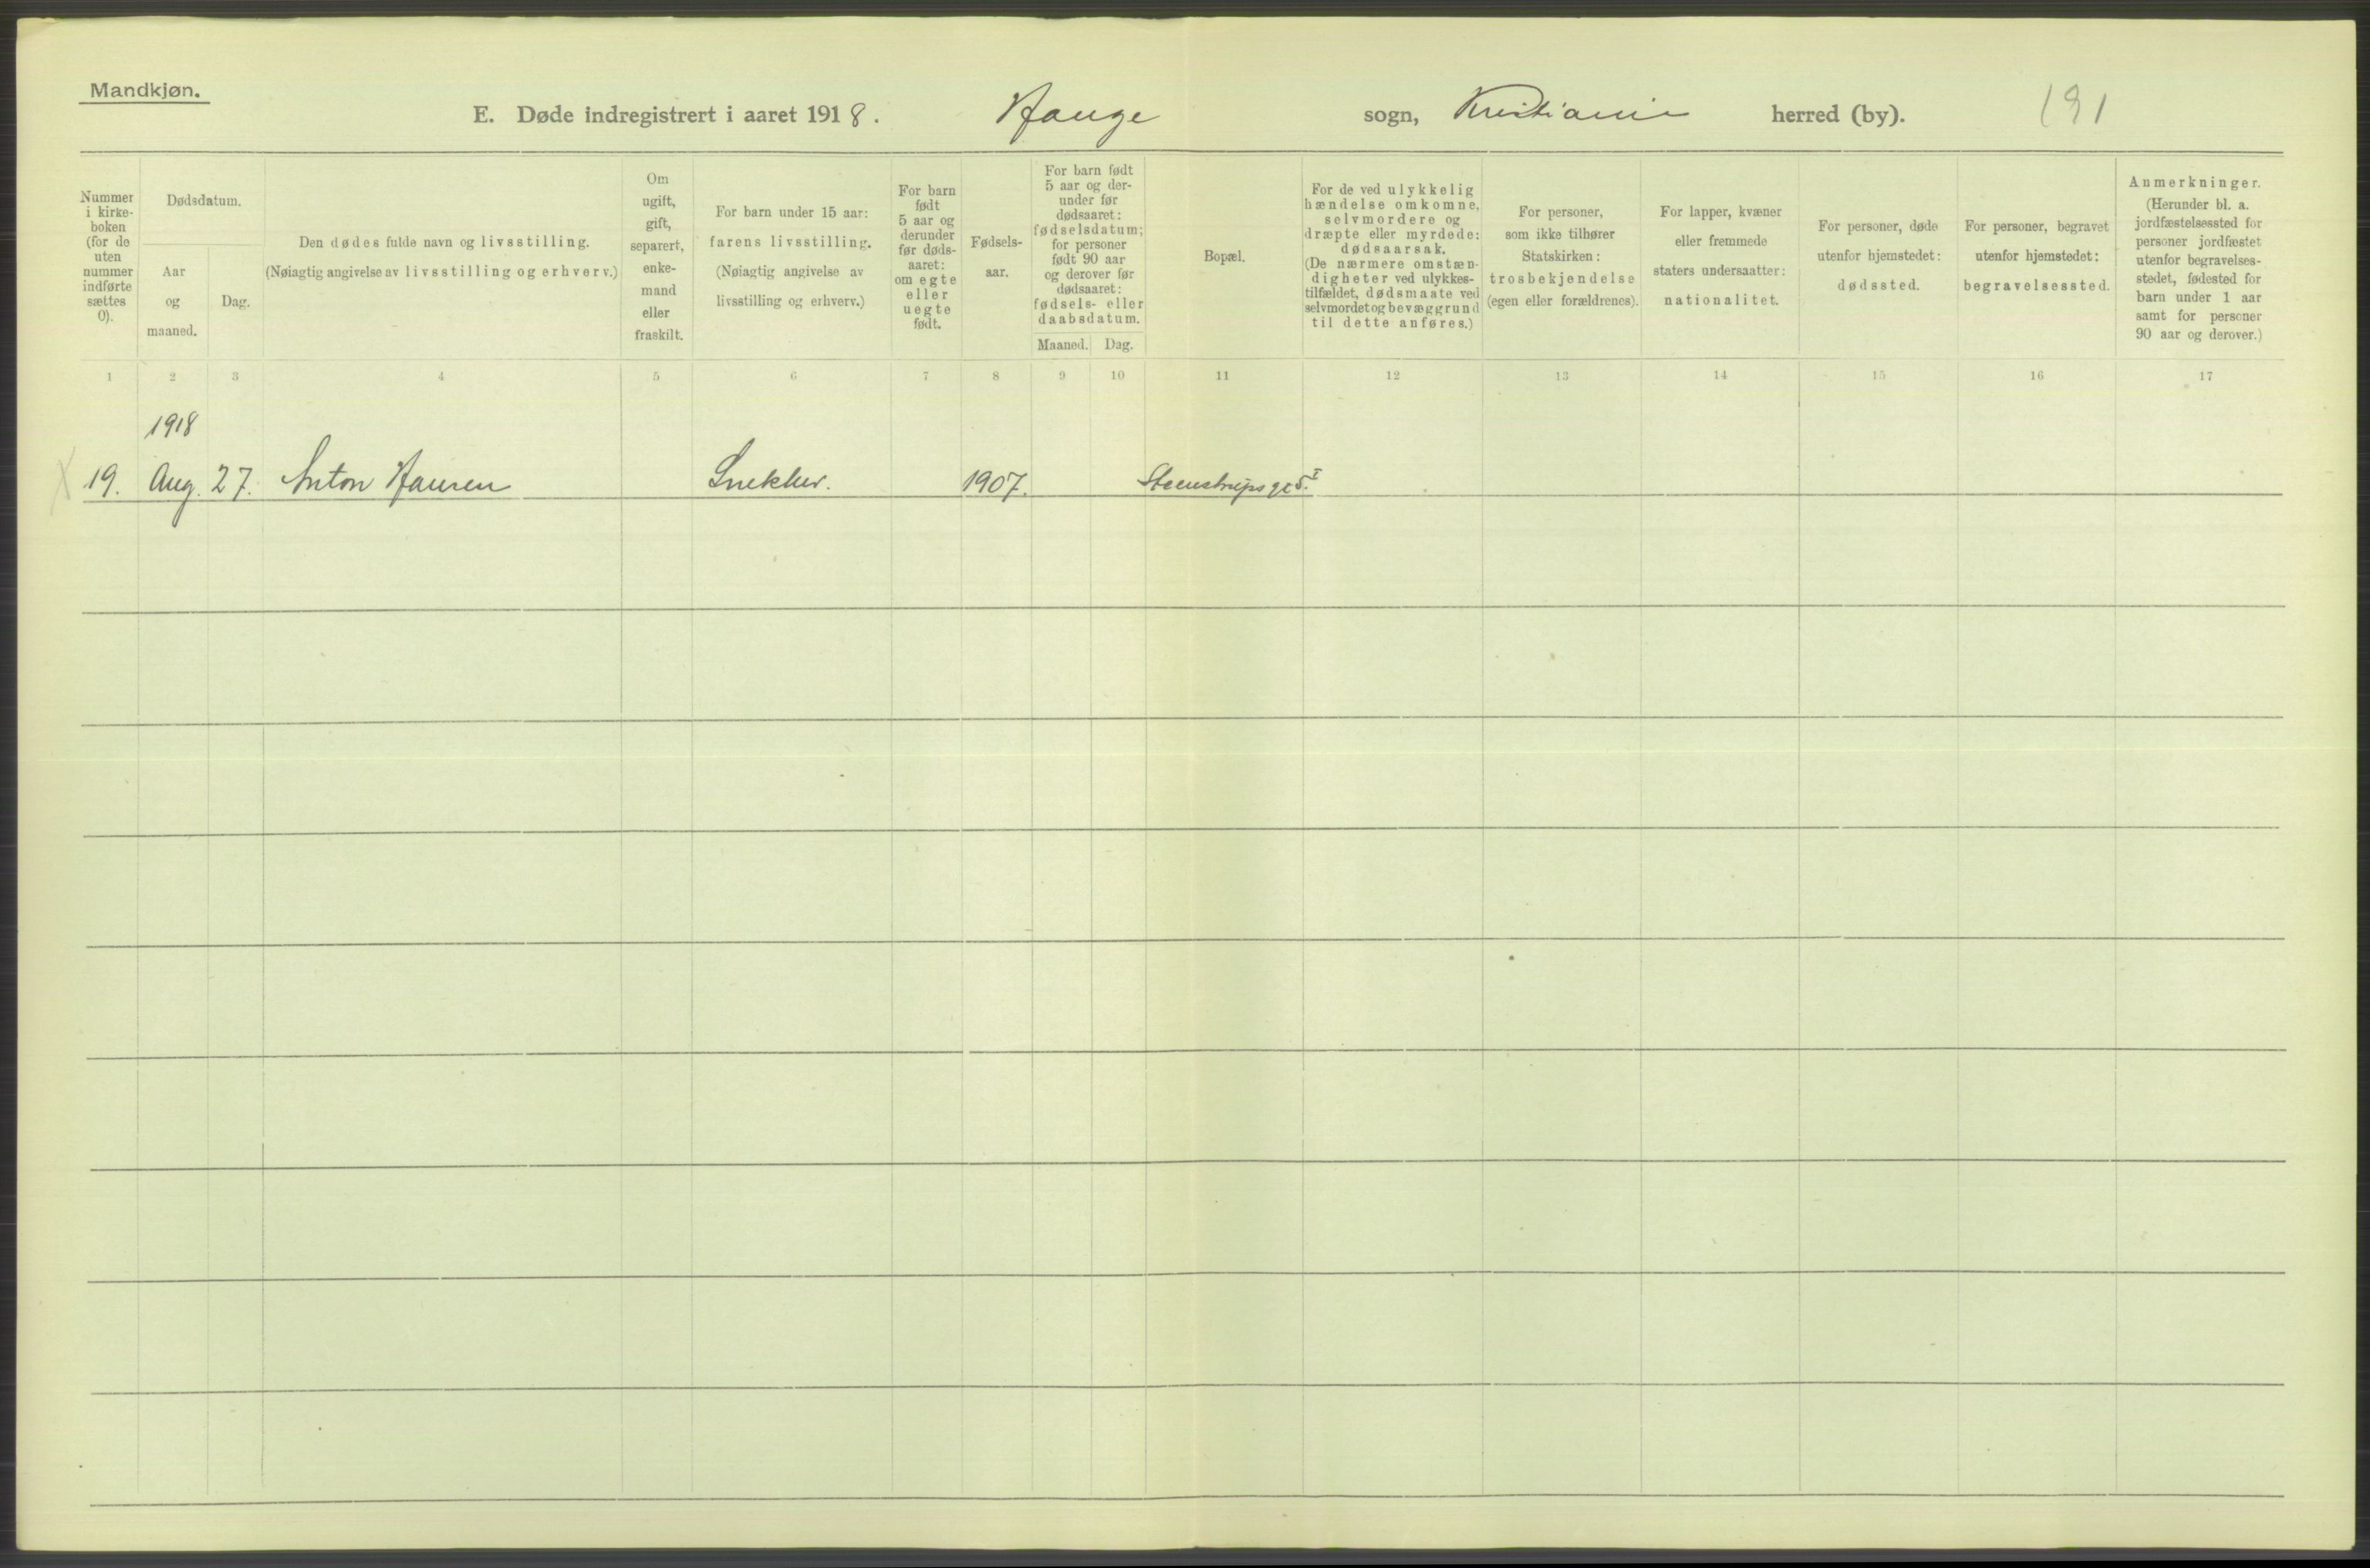 Mandkjøn.
E. Døde indregistrert i aaret 1918. Hauge sogn, Kristiania herred (by). 191
Nummer i kirke-boken (for de uten nummer indførte sættes 0).
Dødsdatum.
Aar og maaned.
Dag.
Den dødes fulde navn og livsstilling.
(Nøiagtig angivelse av livsstilling og erhverv.)
Om ugift, gift, separert, enke-mand eller fraskilt.
For barn under 15 aar:
farens livsstilling.
(Nøiagtig angivelse av
livsstilling og erhverv.)
For barn født 5 aar og derunder før døds-aaret: om egte eller uegte født.
Fødsels-aar.
For barn født 5 aar og der-under før dødsaaret: fødselsdatum; for personer født 90 aar og derover før dødsaaret: fødsels- eller daabsdatum.
Maaned. Dag.
Bopæl.
For de ved ulykkelig hændelse omkomne, selvmordere og dræpte eller myrdede: dødsaarsak. (De nærmere omstæn-digheter ved ulykkes-tilfældet, dødsmaate ved selvmordet og bevæggrund til dette anføres.)
For personer,
som ikke tilhører
Statskirken:
trosbekjendelse
(egen eller forældrenes).
For lapper, kvæner
eller fremmede
staters undersaatter:
nationalitet.
For personer, døde
utenfor hjemstedet:
dødssted.
For personer, begravet
utenfor hjemstedet:
begravelsessted.
Anmerkninger.
(Herunder bl. a.
jordfæstelsessted for
personer jordfæstet
utenfor begravelses-
stedet, fødested for
barn under 1 aar
samt for personer
90 aar og derover.)
1 2 3 4 5 6 7 8 9 10 11 12 13 14 15 16 17
1918
19. Aug. 27. Anton Hansen Snekker. 1907. Steenstrups gt 5. I